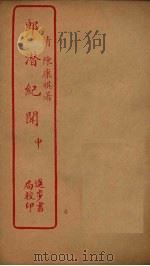 清 陳康祺著
郎潛紀聞 中
進步書
局校印